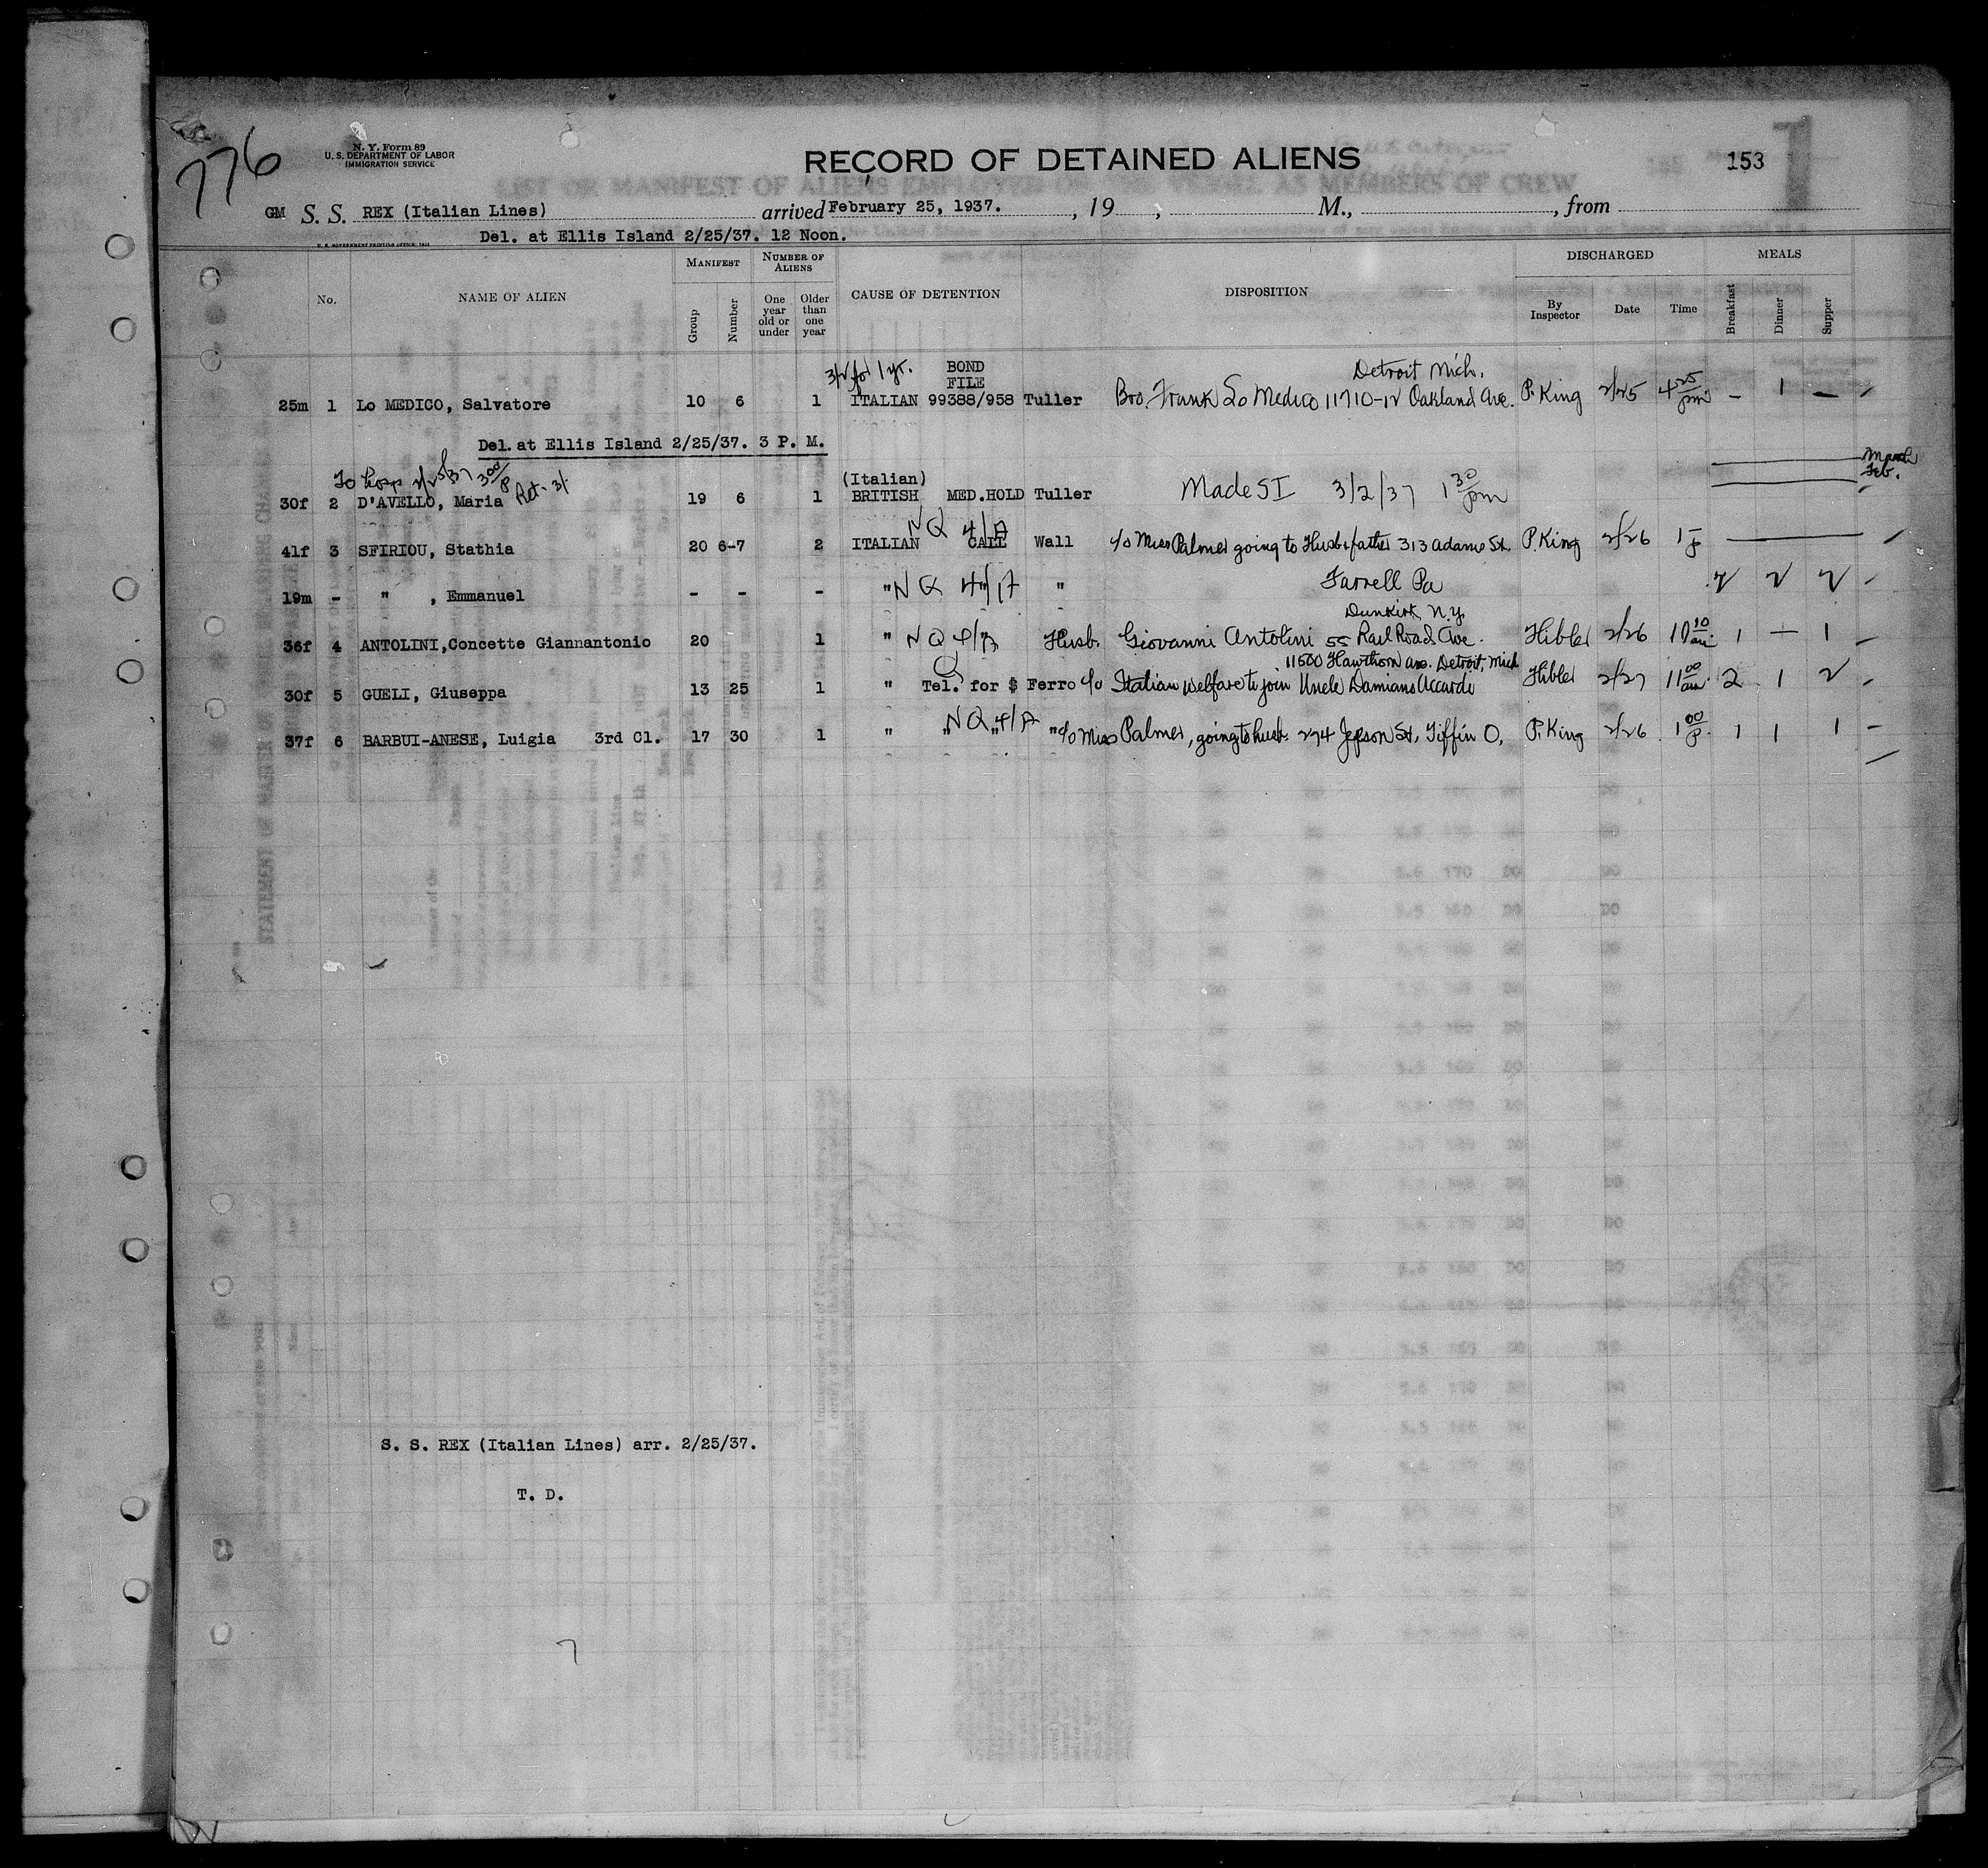 776
N. Y. Form 89
U. S. DEPARTMENT OF LABOR
IMMIGRATION SERVICE
RECORD OF DETAINED ALIENS
153
1
GM S. S. REX (Italian Lines) arrived February 25, 1937. , 19 , M., , from
Del. at Ellis Island 2/25/37. 12 Noon.
No. NAME OF ALIEN MANIFEST Group Number NUMBER OF ALIENS One year old or under Older than one year CAUSE OF DETENTION DISPOSITION DISCHARGED By Inspector Date Time MEALS Breakfast Dinner Supper
for 1 yr. BOND Detroit Mich.
FILE
25m 1 Lo MEDICO, Salvatore 10 6 1 ITALIAN 99388/958 Tuller Bro. Frank Lo Medico 11710-12 Oakland Ave. P. King 2/25 4 25 pm — 1 —
Del. at Ellis Island 2/25/37. 3 P. M.
To Hosp 2/25/37 3 00 P Ret. 3/ (Italian) March
Feb.
30f 2 D'AVELLO, Maria 19 6 1 BRITISH MED.HOLD Tuller Made SI 3/2/37 1 30 pm
NQ 4/A
41f 3 SFIRIOU, Stathia 20 6-7 2 ITALIAN CALL Wall c/o Miss Palmer going to Husb & father 313 Adams St. P. King 2/26 1 P
19m - " , Emmanuel - - - " NQ 4/A " Farrell Pa 2 2 2
Dunkirk, N.Y.
36f 4 ANTOLINI, Concette Giannantonio 20 1 " NQ 4/A Husb. Giovanni Antolini 55 Rail Road Ave. Hibler 2/26 10 10 am 1 — 1
11500 Hawthorn ave. Detroit, Mich
30f 5 GUELI, Giuseppa 13 25 1 " Tel. for $ Ferro c/o Italian Welfare to join Uncle Damiano Accardi Hibler 2/27 11 00 am 2 1 2
37f 6 BARBUI-ANESE, Luigia 3rd Cl. 17 30 1 " " NQ 4/A " c/o Miss Palmer, going to husb. 274 Jepson St., Tiffin O. P. King 2/26 1 00 P. 1 1 1
S. S. REX (Italian Lines) arr. 2/25/37.
T. D.